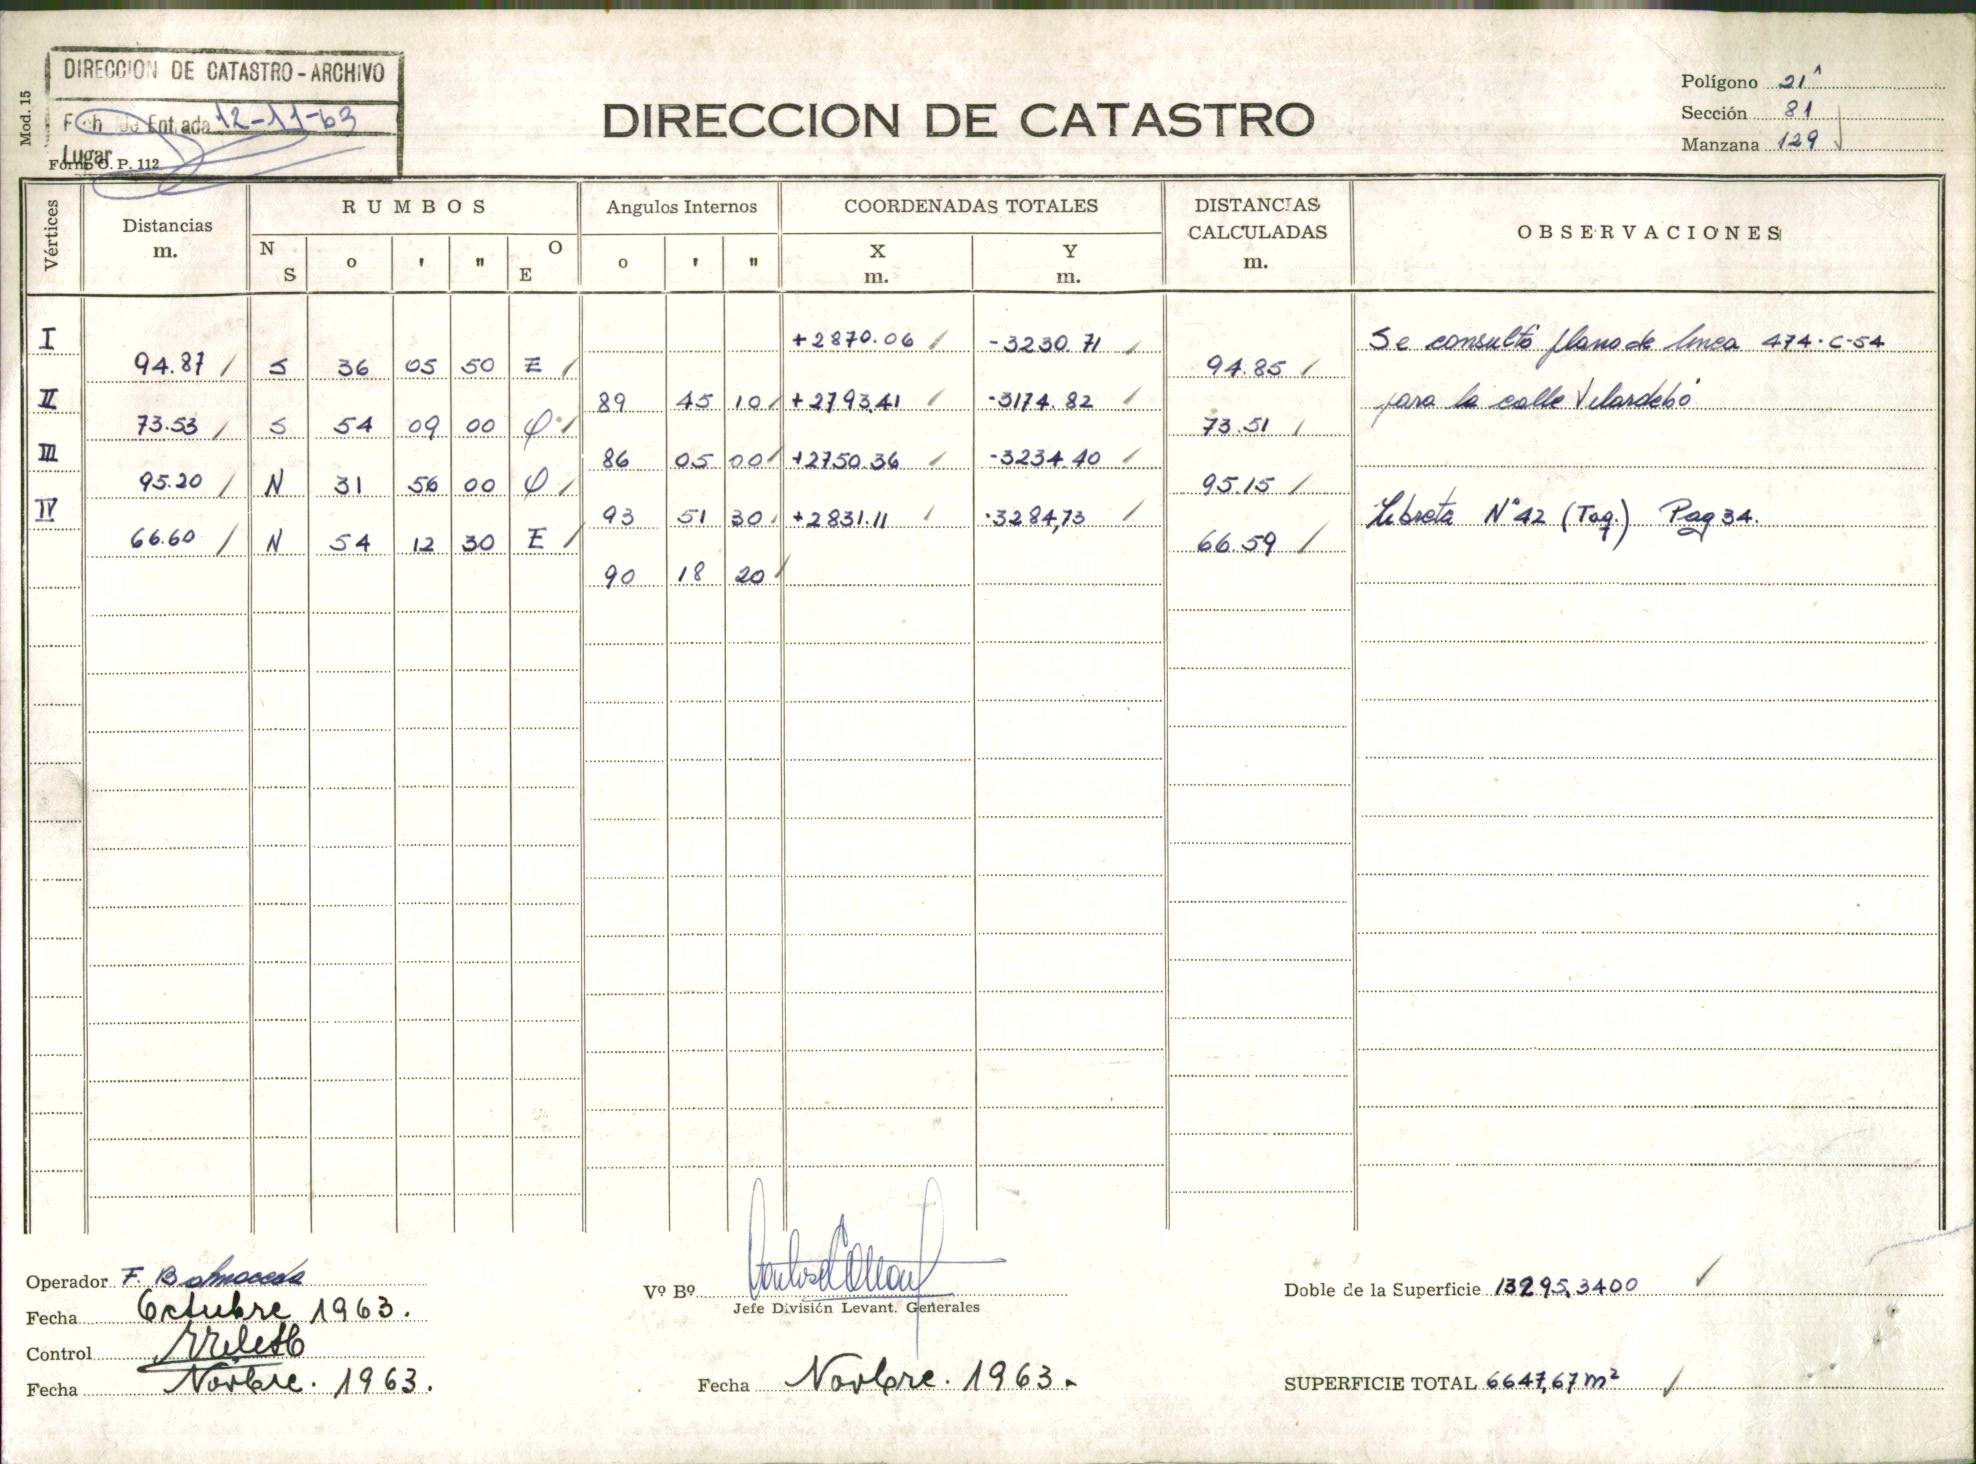 DIRECCION DE CATASTRO - ARCHIVO
Fecha de Entrada 12-11-63
Lugar
Mod. 15
Form. O. P. 112
DIRECCION DE CATASTRO
Polígono 21^
Sección 81
Manzana 129
Vértices
Distancias
m.
RUMBOS
N
S
o
'
"
O
E
Angulos Internos
o ' "
COORDENADAS TOTALES
X
m.
Y
m.
DISTANCIAS
CALCULADAS
m.
OBSERVACIONES
I +2870.06 -3230.71 Se consultó plano de linea 474-C-54
94.87 S 36 05 50 E 94.85
II 89 45 10 +2793.41 -3174.82 para la calle Vilardebó
73.53 S 54 09 00 O 73.51
III 86 05 00 +2750.36 -3234.40
95.20 N 31 56 00 O 95.15
IV 93 51 30 +2831.11 -3284,73 Libreta N°42 (Taq.) Pag 34.
66.60 N 54 12 30 E 66.59
90 18 20
Operador F. Balmaceda
Fecha Octubre 1963.
Control
Fecha Novbre. 1963.
Vº Bº
Jefe División Levant. Generales
Fecha Novbre. 1963.
Doble de la Superficie 13295,3400
SUPERFICIE TOTAL 6647,67 m²